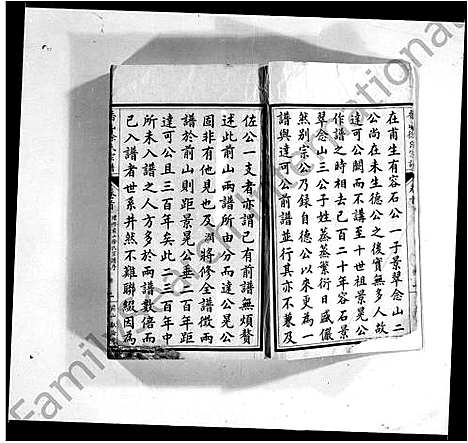 在甫生有容石公一子景翠念山二
公尚在未生德公之後實無多人故
達可公闕而不講至十世祖景晃公
作譜之時相去已百二十年容石景
翠念山三公子姓蒸蒸繁衍日盛儼
然別宗公乃錄自德公以來更為一
譜與達可公前譜並行其亦不兼及
佐公一支者亦謂已有前譜無煩贅
述此前山兩譜所由分而達公晃公
固非有他見也及湖將修全譜徵兩
譜於前山則距景晃公垂二百年距
達可公且三百年矣此二三百年中
所未入譜之人方多於兩譜數倍而
已入譜者世系井然不難聯綴因為